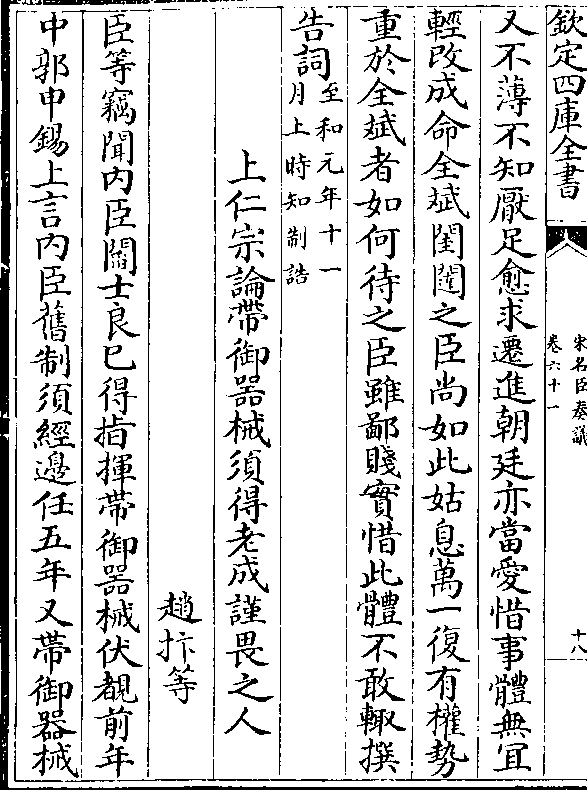 欽定四庫全書
宋名臣奏議
卷六十一
十八
又不薄不知厭足愈求遷進朝廷亦當愛惜事體無宜
輕改成命全斌閨闥之臣尚如此姑息萬一復有權勢
重於全斌者如何待之臣雖鄙賤實惜此體不敢輙撰
告詞至和元年十一
月上時知制誥
上仁宗論帶御器械須得老成謹畏之人
趙抃等
臣等竊聞内臣閻士良已得指揮帶御器械伏覩前年
中郭申錫上言内臣舊制須經邊任五年又帶御器械